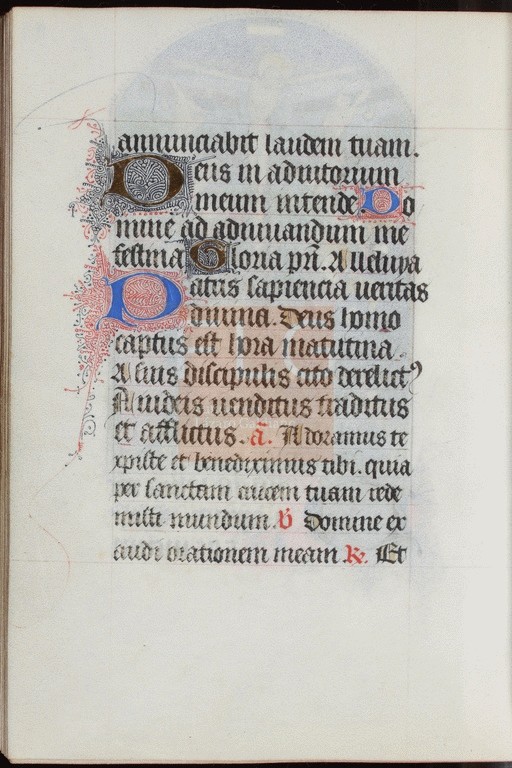 annunciabit laudem tuam.
Deus in adiutorium
meum intende Do
mine ad adiuuandum me
festina Gloria pri. Alleluya
Patris sapiencia ueritas
diuina. Deus homo
captus est hora matutina.
A suis discipulis cito derelictꝰ
A iudeis uenditus traditus
et afflictus. a. Adoramus te
xpiste et benediximus tibi. quia
per sanctam crucem tuam rede
misti mundum. V Domine ex
audi orationem meam R. Et